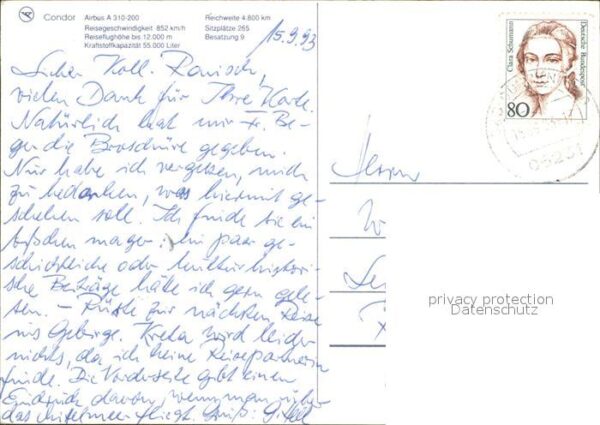 Condor
Airbus A 310-200
Reisegeschwindigkeit 852 km/h
Reiseflughöhe bis 12.000 m
Kraftstoffkapazität 55.000 Liter
Reichweite 4.800 km
Sitzplätze 265
Besatzung 9
15.9.93
Lieber Koll. Ranisch,
vielen Dank für Ihre Karte.
Natürlich hat mir Fr. Be-
ger die Broschüre gegeben.
Nur habe ich vergessen, mich
zu bedanken, was hiermit ge-
schehen soll. Ich finde sie ein
bißchen mager: ein paar ge-
schichtliche oder kulturhistori-
sche Beiträge hätte ich gern gele-
sen. – Rüste zur nächsten Reise
ins Gebirge. Kreta wird leider
nichts, da ich keine Reisepartnerin
finde. Die Vorderseite gibt einen
Eindruck davon, wenn man über
das Mittelmeer fliegt. Gruß:
Clara Schumann
Deutsche Bundespost
80
Herrn
privacy protection
Datenschutz